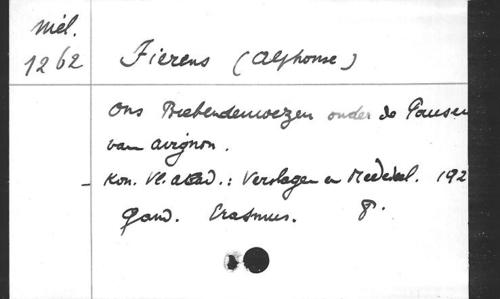 Mél.
1262
Fierens (Alphonse)
Ons Prebendenwezen onder de Pausen
van Avignon.
- Kon. Vl. Acad.: Verslagen en Mededel. 192
Gand. Erasmus. 8°.